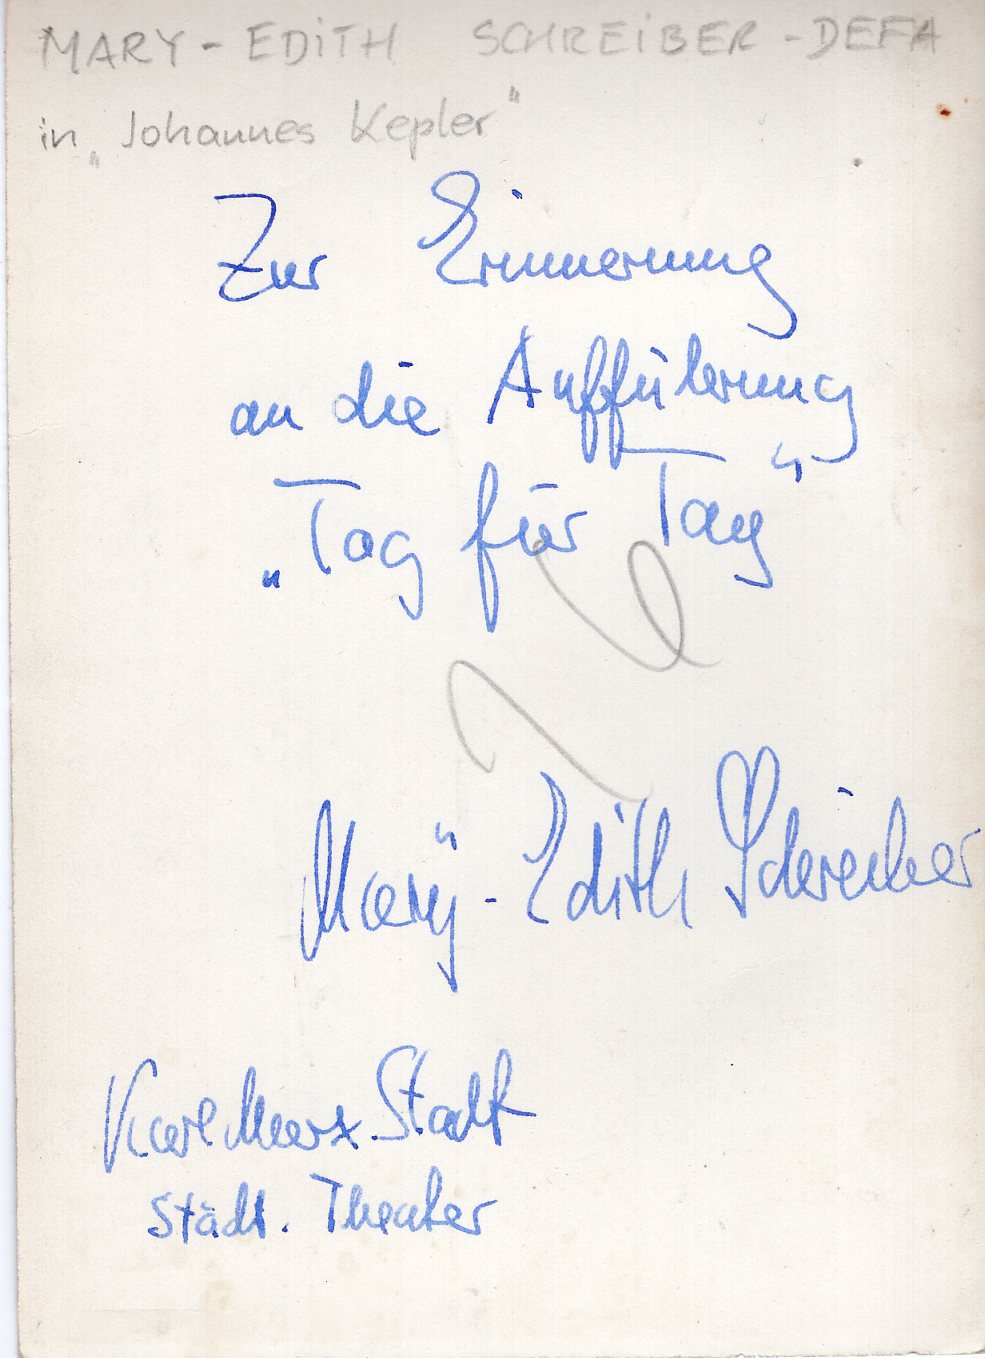 MARY-EDITH SCHREIBER-DEFA
in „Johannes Kepler"
Zur Erinnerung
an die Aufführung
„Tag für Tag"
Mary-Edith Schreiber
Karl-Marx-Stadt
Städt. Theater